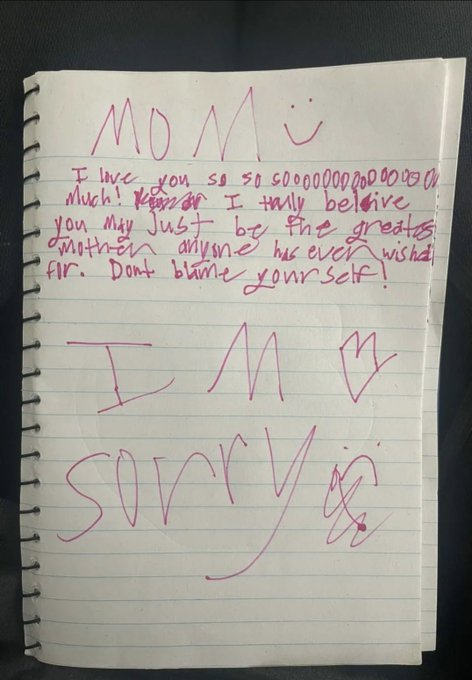 MOM :)
I love you so so sooooooooooooooo
much! I belive
you may just be the greates
mother anyone has ever wished
for. Dont blame yourself!
I M ♡
sorry